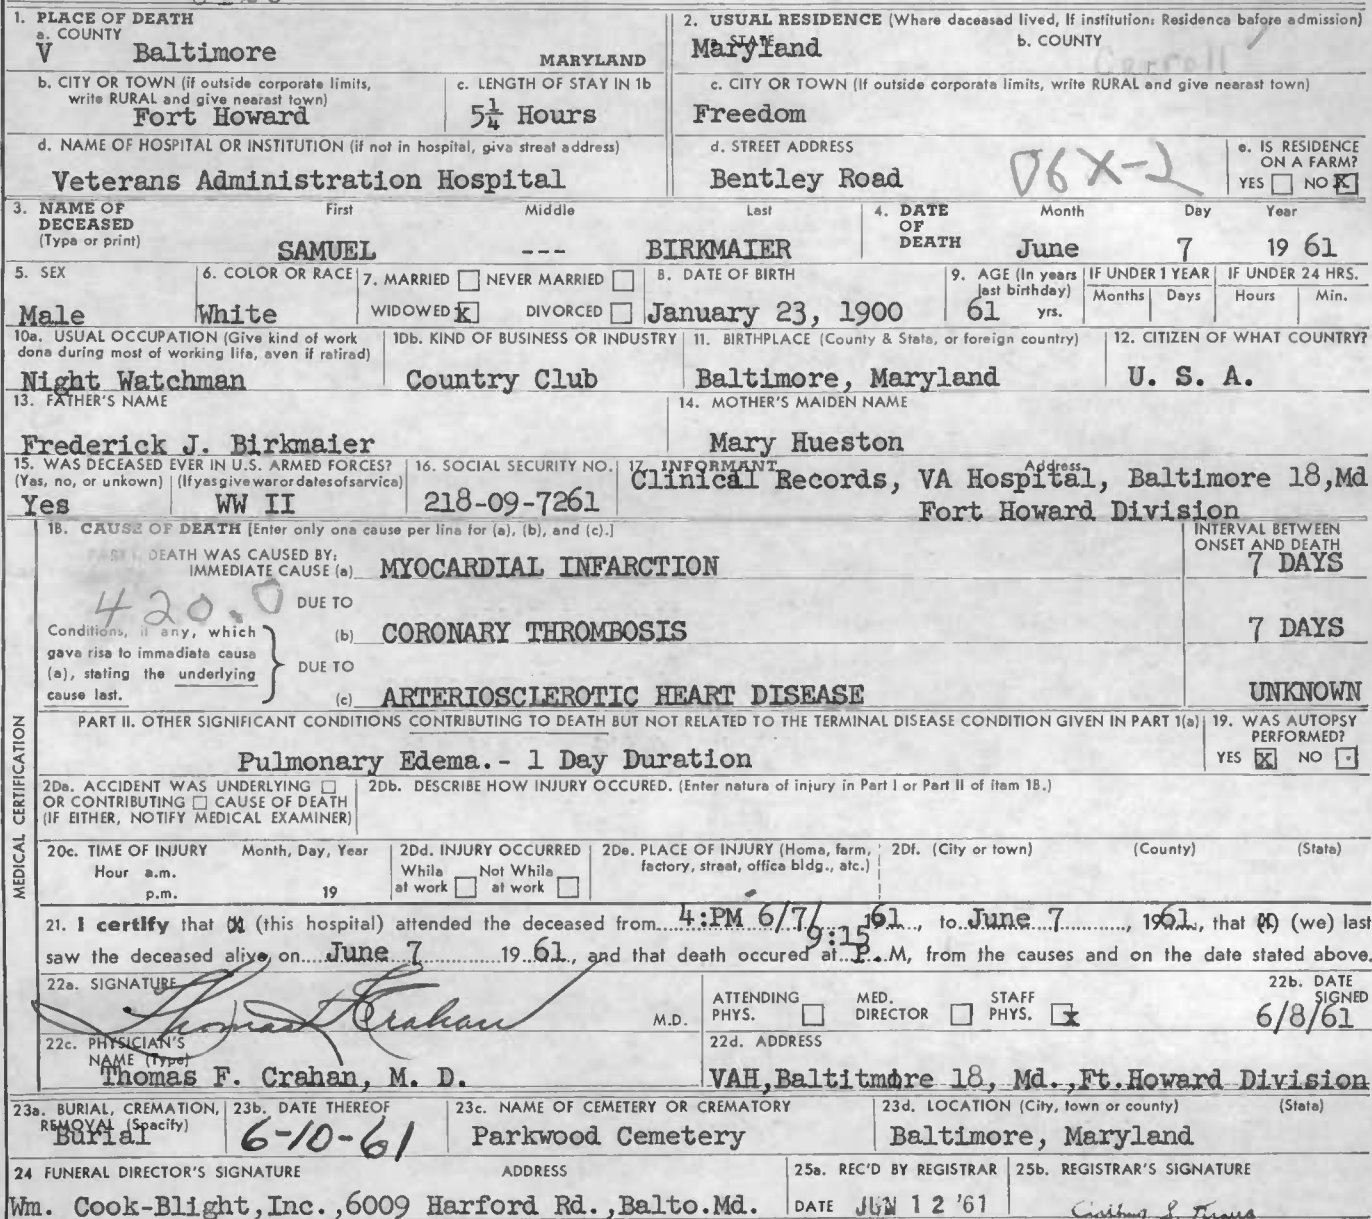 1. PLACE OF DEATH
a. COUNTY
V Baltimore MARYLAND
2. USUAL RESIDENCE (Whare daceasad lived, If institution: Residenca bafore admission)
a. STATE b. COUNTY
Maryland Carroll
b. CITY OR TOWN (if outside corporate limits, write RURAL and give nearast town)
Fort Howard
c. LENGTH OF STAY IN 1b
5¼ Hours
c. CITY OR TOWN (If outside corporata limits, write RURAL and give nearest town)
Freedom
d. NAME OF HOSPITAL OR INSTITUTION (if not in hospital, giva streat address)
Veterans Administration Hospital
d. STREET ADDRESS
Bentley Road 06X-2
e. IS RESIDENCE ON A FARM?
YES NO X
3. NAME OF DECEASED
(Typa or print)
First Middle Last
SAMUEL --- BIRKMAIER
4. DATE OF DEATH
Month Day Year
June 7 19 61
5. SEX
Male
6. COLOR OR RACE
White
7. MARRIED NEVER MARRIED
WIDOWED X DIVORCED
8. DATE OF BIRTH
January 23, 1900
9. AGE (In years last birthday)
61 yrs.
IF UNDER 1 YEAR
Months Days
IF UNDER 24 HRS.
Hours Min.
10a. USUAL OCCUPATION (Give kind of work dona during most of working lifa, aven if ratirad)
Night Watchman
10b. KIND OF BUSINESS OR INDUSTRY
Country Club
11. BIRTHPLACE (County & Stata, or foreign country)
Baltimore, Maryland
12. CITIZEN OF WHAT COUNTRY?
U. S. A.
13. FATHER'S NAME
Frederick J. Birkmaier
14. MOTHER'S MAIDEN NAME
Mary Hueston
15. WAS DECEASED EVER IN U.S. ARMED FORCES?
(Yas, no, or unkown) (Ifyasgivewarordatesofsarvica)
Yes WW II
16. SOCIAL SECURITY NO.
218-09-7261
17. INFORMANT Address
Clinical Records, VA Hospital, Baltimore 18,Md
Fort Howard Division
18. CAUSE OF DEATH [Enter only ona cause per lina for (a), (b), and (c).]
INTERVAL BETWEEN ONSET AND DEATH
PART I. DEATH WAS CAUSED BY:
IMMEDIATE CAUSE (a) MYOCARDIAL INFARCTION 7 DAYS
420.0 DUE TO
Conditions, if any, which gava risa to immadiata causa (a), stating the underlying cause last.
(b) CORONARY THROMBOSIS 7 DAYS
DUE TO
(c) ARTERIOSCLEROTIC HEART DISEASE UNKNOWN
MEDICAL CERTIFICATION
PART II. OTHER SIGNIFICANT CONDITIONS CONTRIBUTING TO DEATH BUT NOT RELATED TO THE TERMINAL DISEASE CONDITION GIVEN IN PART 1(a)
Pulmonary Edema.- 1 Day Duration
19. WAS AUTOPSY PERFORMED?
YES X NO
20a. ACCIDENT WAS UNDERLYING
OR CONTRIBUTING CAUSE OF DEATH
(IF EITHER, NOTIFY MEDICAL EXAMINER)
20b. DESCRIBE HOW INJURY OCCURED. (Enter natura of injury in Part I or Part II of itam 18.)
20c. TIME OF INJURY Month, Day, Year
Hour a.m.
p.m. 19
20d. INJURY OCCURRED
Whila at work Not Whila at work
20e. PLACE OF INJURY (Homa, farm, factory, straat, office bldg., atc.)
20f. (City or town) (County) (Stata)
21. I certify that (I) (this hospital) attended the deceased from 4:PM 6/7/ 1961, to June 7, 1961, that (I) (we) last
saw the deceased alive on June 7 19 61, and that death occured at 9:15 P.M, from the causes and on the date stated above.
22a. SIGNATURE
Thomas F Crahan M.D.
ATTENDING PHYS. MED. DIRECTOR STAFF PHYS. x
22b. DATE SIGNED
6/8/61
22c. PHYSICIAN'S NAME (Type)
Thomas F. Crahan, M. D.
22d. ADDRESS
VAH,Baltitmore 18, Md.,Ft.Howard Division
23a. BURIAL, CREMATION, REMOVAL (Spacify)
Burial
23b. DATE THEREOF
6-10-61
23c. NAME OF CEMETERY OR CREMATORY
Parkwood Cemetery
23d. LOCATION (City, town or county) (Stata)
Baltimore, Maryland
24 FUNERAL DIRECTOR'S SIGNATURE ADDRESS
Wm. Cook-Blight,Inc.,6009 Harford Rd.,Balto.Md.
25a. REC'D BY REGISTRAR
DATE JUN 12 '61
25b. REGISTRAR'S SIGNATURE